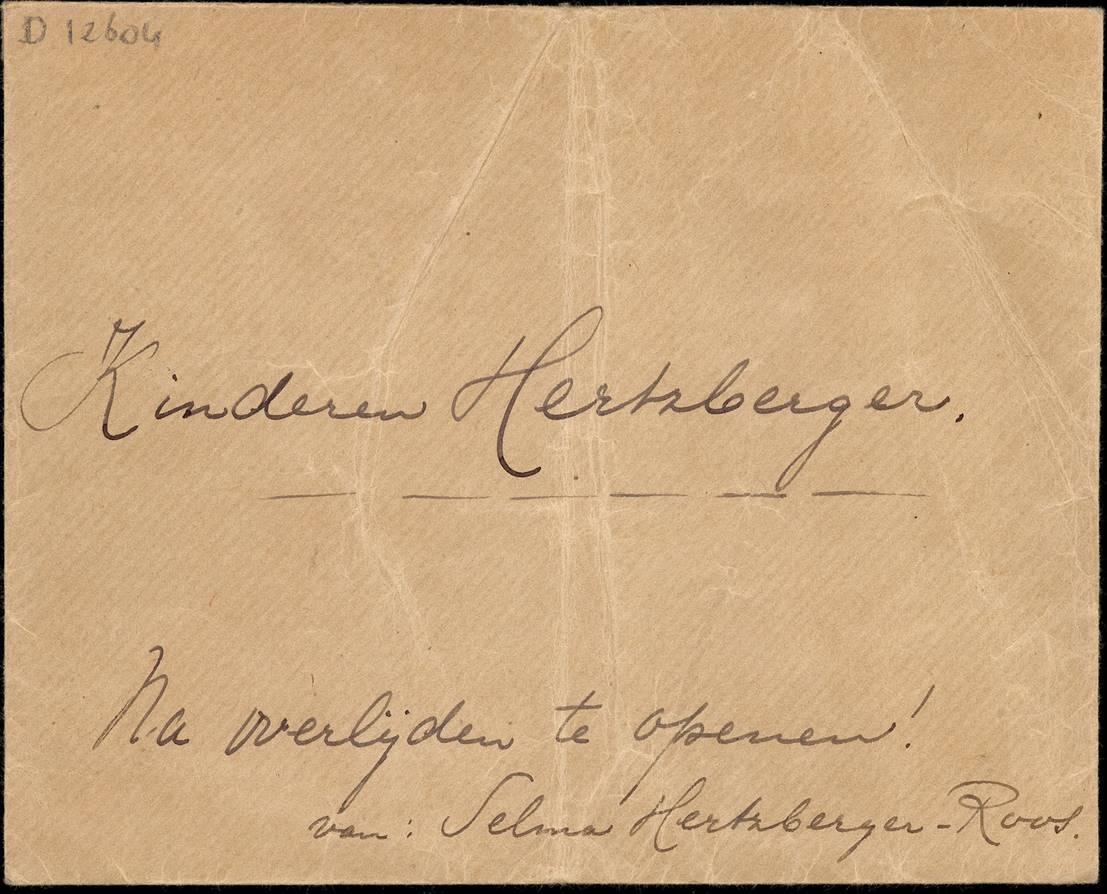 D 12604
Kinderen Hertzberger.
Na overlijden te openen!
van: Selma Hertzberger-Roos.